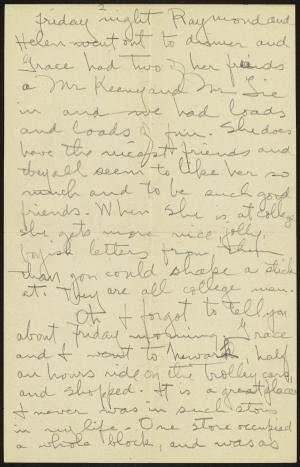 2
Friday night Raymond and
Helen went out to dinner and
Grace had two of her friends
a Mr Keeny and Mr Lie
in and we had loads
and loads of fun. She does
have the nicest friends and
they all seem to like her so
much and to be such good
friends. When she is at college
she gets more nice, jolly,
boyish letters from
than you could shape a stick
at. They are all college men.
Oh I forgot to tell you
about Friday morning Grace
and I went to Newark, half
an hours ride on the trolley cars,
and shopped. It is a great place
I never was in such stores
in my life. One store occupied
a whole block, and was as